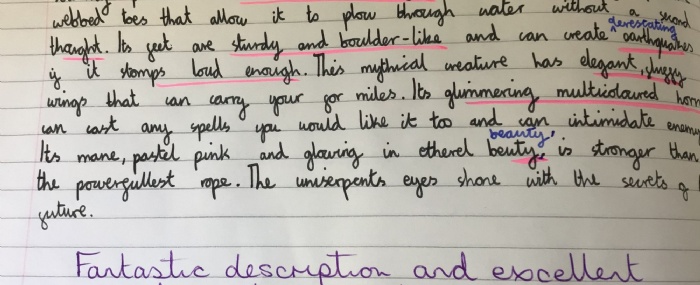 webbed toes that allow it to plow through water without a second
derestating
thought. Its feet are sturdy and boulder-like and can create earthquakes
if it stomps loud enough. This mythical creature has elegant, fluffy
wings that can carry your for miles. Its glimmering multicoloured horn
can cast any spells you would like it too and can intimidate enemy
beauty,
Its mane, pastel pink and glowing in etherel beuty, is stronger than
the powerfullest rope. The uniserpents eyes shone with the secrets of
future.
Fantastic description and excellent